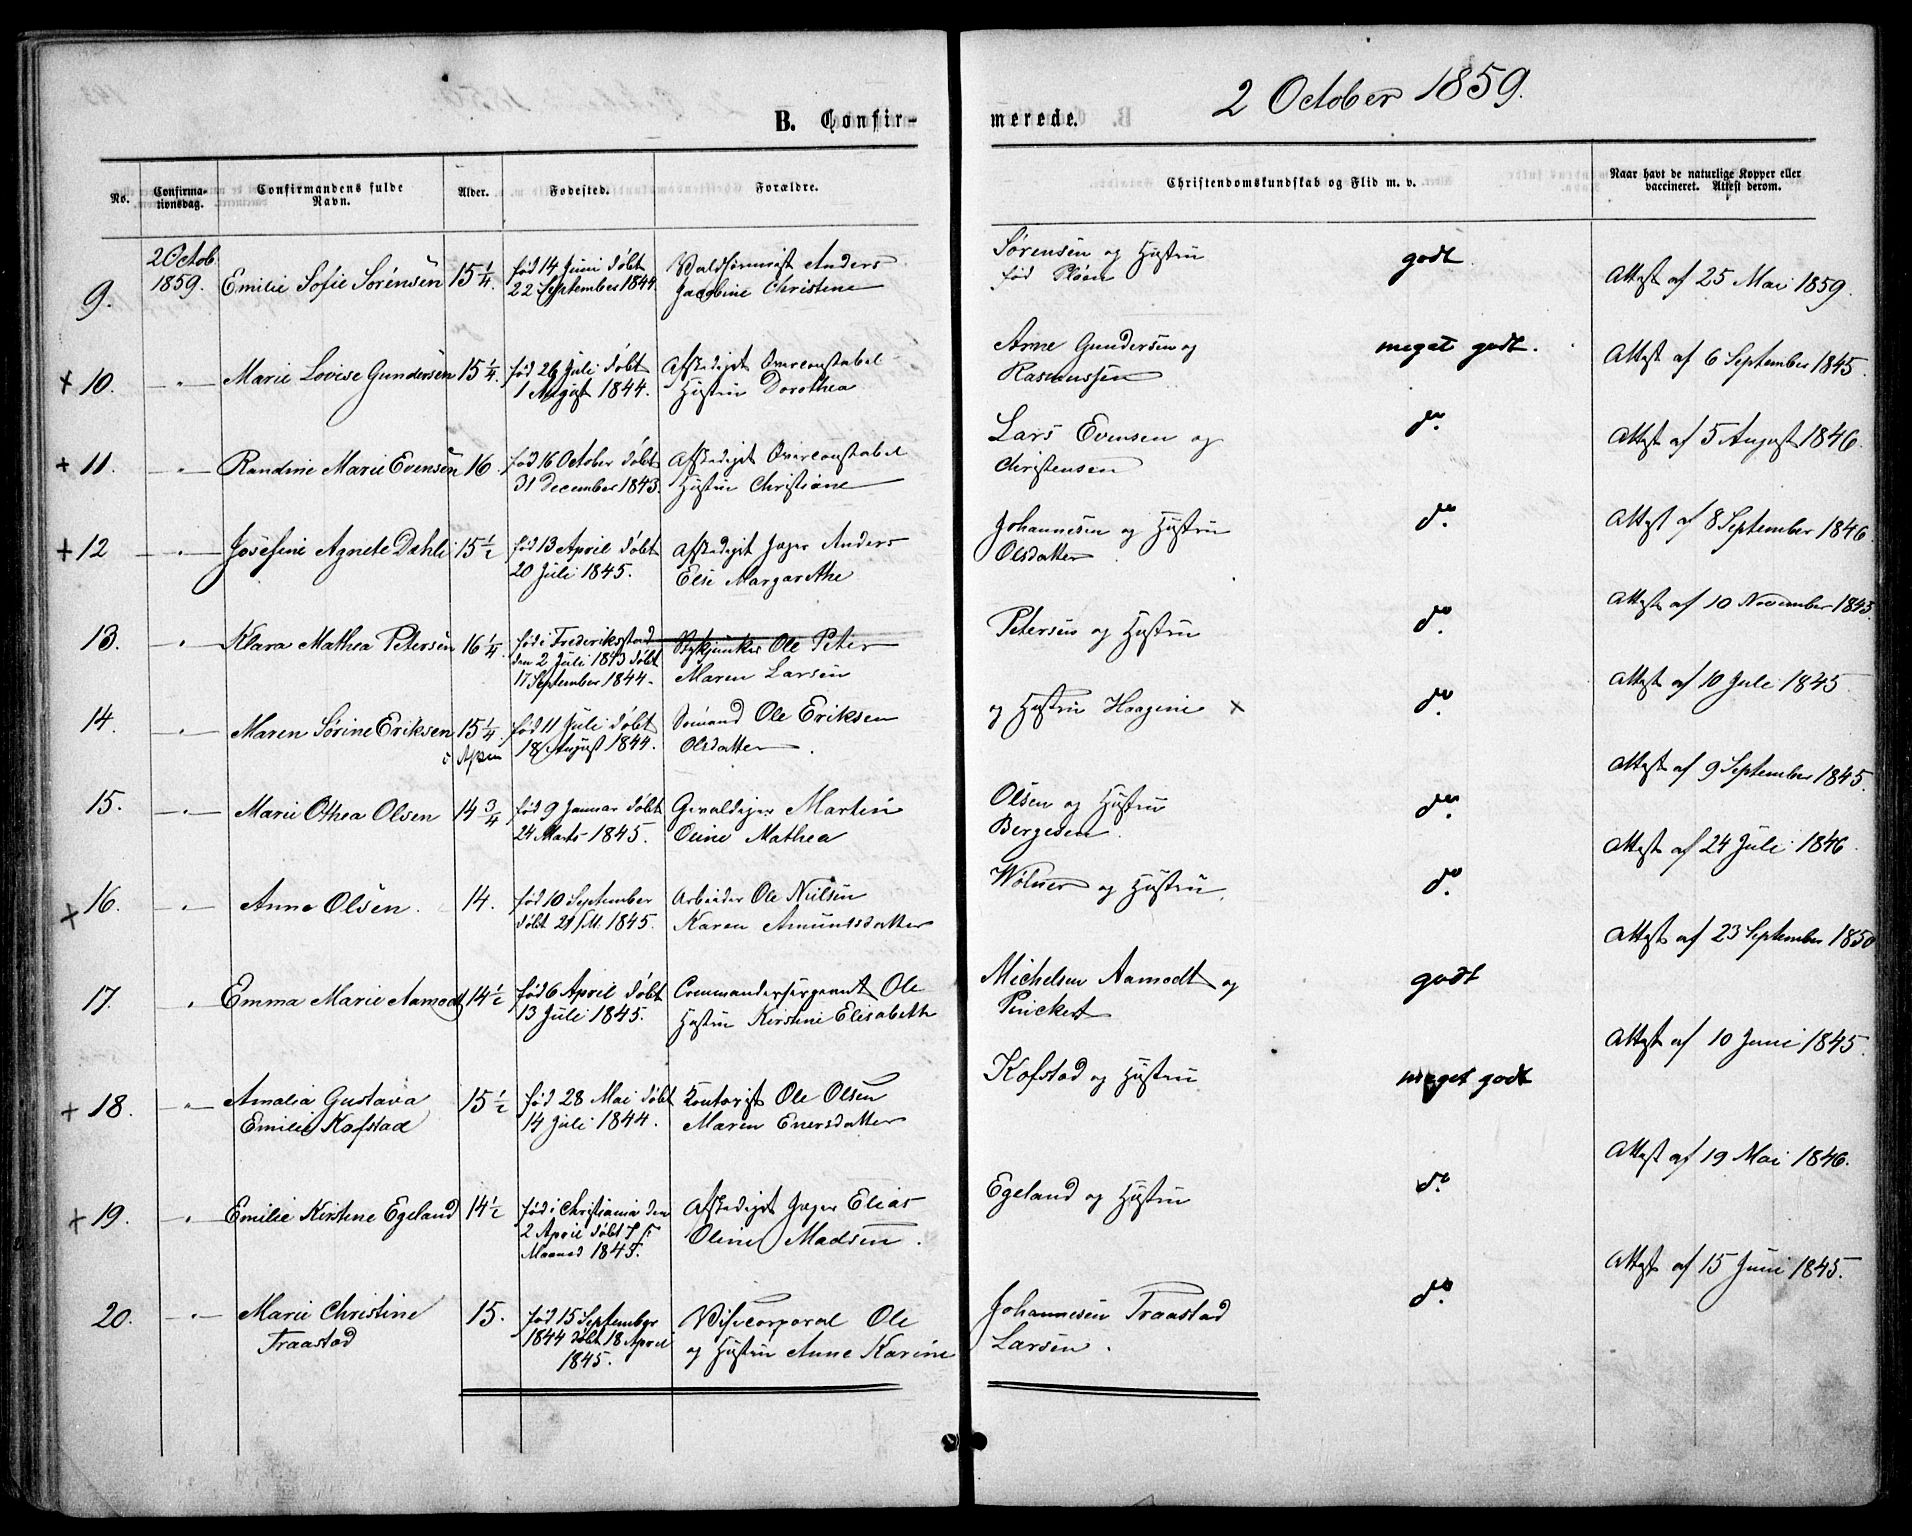 2 October 1859.
B. Confir-
merede.
No.
Confirma-
tionsdag.
Confirmandens fulde
Navn.
Alder.
Fødested.
Forældre.
Christendomskundskab og Flid m. v.
Naar havt de naturlige Kopper eller
vaccineret. Attest derom.
9. 2 Octob 1859. Emilie Sofie Sørensen 15 1/4. født 14 Juni døbt Anders Sørensen og Hustru godt. Attest af 25 Mai 1859.
22 September 1844. Jacobine Christine født
+ 10. —"— Marie Lovise Gundersen 15 1/4. født 26 Juli døbt Afskediget Overconstabel Arne Gundersen og meget godt. Attest af 6 September 1845.
1 August 1844. Hustru Dorothea Rasmussen
+ 11. —"— Randine Marie Evensen 16. født 16 October døbt Afskediget Overconstabel Lars Evensen og do. Attest af 5 August 1846.
31 December 1843. Hustru Christiane Christensen
+ 12 —"— Josefine Agnete Dæhli 15 1/2 født 13 April døbt Afskediget Jæger Anders Johannesen og Hustru do Attest af 8 September 1846
20 Juli 1845. Else Margarethe Olsdatter
13. —"— Klara Mathea Petersen 16 1/4. født i Frederiksstad Stykjunker Ole Peter Petersen og Hustru do. Attest af 10 November 1843.
den 2 Juli 1843 døbt Maren Larsen
17 September 1844.
14. —"— Maren Sørine Eriksen 15 1/4. født 11 Juli døbt Sømand Ole Eriksen og Hustru Haagine x do. Attest af 10 Juli 1845
18 August 1844. Olsdatter.
15. —"— Marie Othea Olsen 14 3/4 født 9 Januar døbt Gevaldiger Martin Olsen og Hustru do. Attest af 9 September 1845.
24 Marts 1845. Oline Mathea Bergesen.
x 16. —"— Anne Olsen. 14. født 10 September Arbeider Ole Nielsen Wølner og Hustru do. Attest af 24 Juli 1846.
døbt 21 s. M. 1845. Karen Amundsdatter
17. " Emma Marie Aamodt 14 1/2 født 6 April døbt Commandersergeant Ole Michelsen Aamodt og godt Attest af 23 September 1850
13 Juli 1845. Hustru Kirstine Elisabeth Pinckert
+ 18. —"— Amalia Gustava 15 1/2 født 28 Mai døbt Kontorist Ole Olsen Kofstad og Hustru meget godt Attest af 10 Juni 1845.
Emilie Kofstad 14 Juli 1844. Maren Enersdatter
x 19. —"— Emilie Kirstine Egeland 14 1/2 født i Christiania den Afskediget Jæger Elias Egeland og Hustru do. Attest af 19 Mai 1846.
2 April døbt Oline Madsen.
Maaned 1845.
20. —"— Marie Christine 15. født 15 September Vicecorporal Ole Johannesen Traastad do. Attest af 15 Juni 1845.
Traastad 1844 døbt 18 April og Hustru Anne Karine Larsen.
1845.